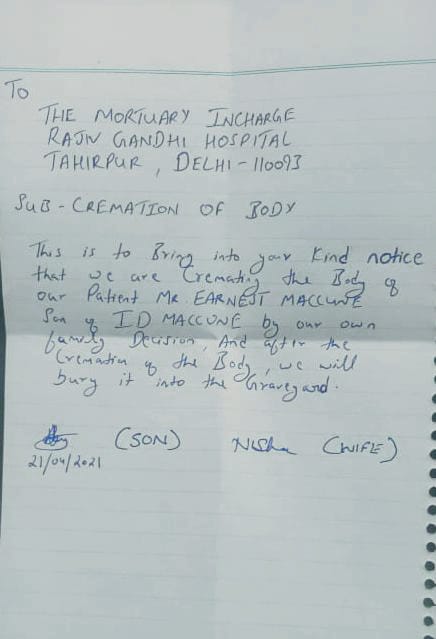 To
THE MORTUARY INCHARGE
RAJIV GANDHI HOSPITAL
TAHIRPUR, DELHI-110093
SUB-CREMATION OF BODY
This is to Bring into your Kind notice
that we are Cremating the Body of
our Patient MR EARNEST MACCUNE
Son of I D MACCUNE by our own
family Decision, And after the
Cremation of the Body, we will
bury it into the Graveyard.
(SON) Nisha (WIFE)
21/04/2021